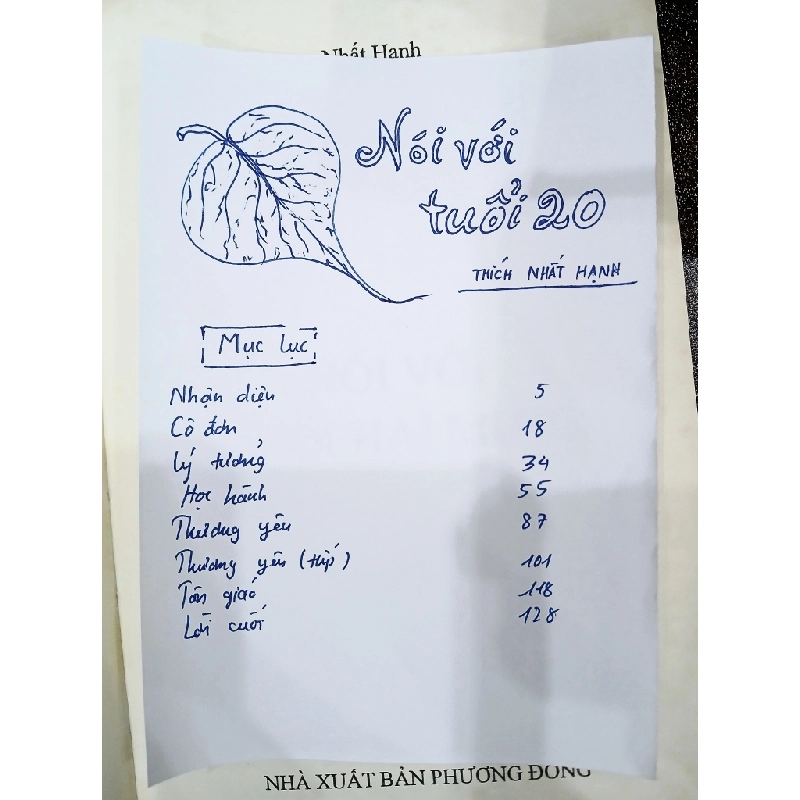 Nhất Hạnh
Nói với
tuổi 20
THÍCH NHẤT HẠNH
Mục lục
Nhận diện 5
Cô đơn 18
Lý tưởng 34
Học hành 55
Thương yêu 87
Thương yêu (tiếp) 101
Tôn giáo 118
Lời cuối 128
NHÀ XUẤT BẢN PHƯƠNG ĐÔNG